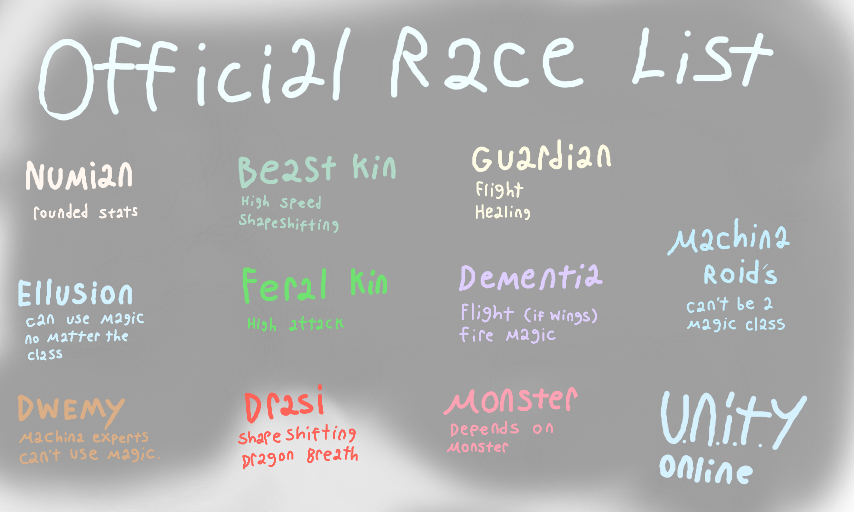 Official Race List
Numian
rounded stats
Beast kin
High speed
Shapeshifting
Guardian
Flight
Healing
Machina
Roid's
can't be a
magic class
Ellusion
can use magic
no matter the
class
Feral kin
High attack
Dementia
Flight (if wings)
fire magic
Dwemy
Machina experts
can't use magic.
Drasi
shape shifting
Dragon Breath
Monster
Depends on
Monster
U.N.I.T.Y
online